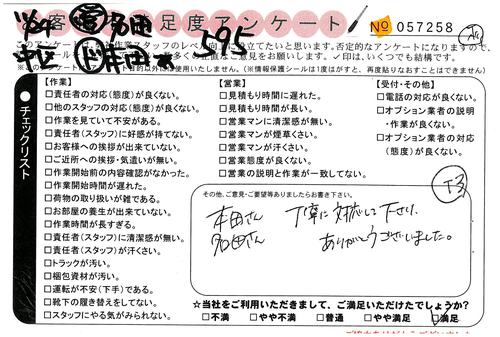 客 足度アンケート
No 057258
J95
作業スタッフのレベル向上に役立てたいと思います。否定的なアンケートになりますので、
多くの正直なご意見をお願いします。✓印は、いくつでも結構です。
目的以外には使用いたしません。(※情報保護シールは1度はがすと、再度貼りなおすことはできません)
●チェックリスト
【作業】
□責任者の対応(態度)が良くない。
□他のスタッフの対応(態度)が良くない。
□作業を見ていて不安がある。
□責任者(スタッフ)に好感が持てない。
□お客様への挨拶が出来ていない。
□ご近所への挨拶・気遣いが無い。
□作業開始前の内容確認がなかった。
□作業開始時間が遅れた。
□荷物の取り扱いが雑である。
□お部屋の養生が出来ていない。
□作業時間が長すぎる。
□責任者(スタッフ)に清潔感が無い。
□責任者(スタッフ)が汗くさい。
□トラックが汚い。
□梱包資材が汚い。
□運転が不安(下手)である。
□靴下の履き替えをしてない。
□スタッフにやる気がみられない。
【営業】
□見積もり時間に遅れた。
□見積もり時間が長い。
□営業マンに清潔感が無い。
□営業マンが煙草くさい。
□営業マンが汗くさい。
□営業態度が良くない。
□営業の説明と作業が一致してない。
【受付・その他】
□電話の対応が良くない。
□オプション業者の説明
・作業が良くない。
□オプション業者の対応
(態度)が良くない。
その他、ご意見・ご要望等ありましたらお書き下さい。
本田さん 丁寧に対応して下さり、
多田さん ありがとうございました。
☆当社をご利用いただきまして、ご満足いただけたでしょうか?
□不満 □やや不満 □普通 □やや満足 ☑満足